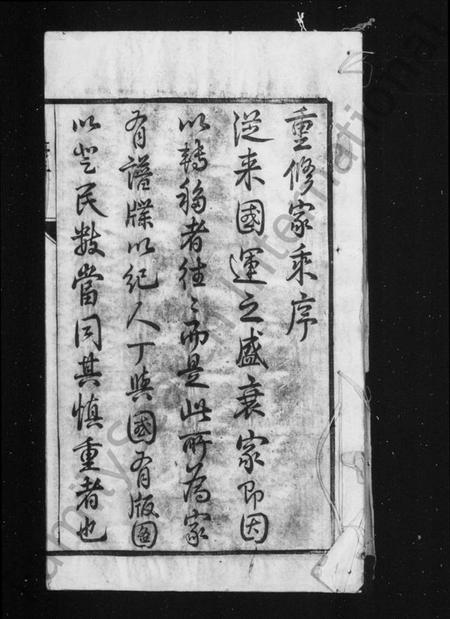 重修家乘序
從来國運之盛衰家即因
以轉移者往〻而是此所為家
有譜牒以紀人丁與國有版圖
以登民数當同其慎重者也
FamilySearch International